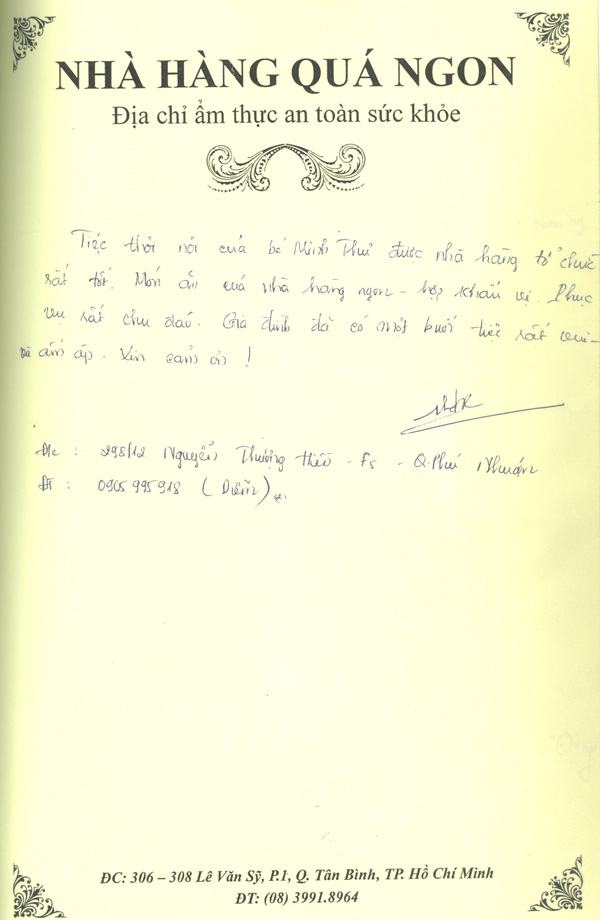 NHÀ HÀNG QUÁ NGON
Địa chỉ ẩm thực an toàn sức khỏe
Tiệc thôi nôi của bé Minh Thư được nhà hàng tổ chức
rất tốt. Món ăn của nhà hàng ngon - hợp khẩu vị. Phục
vụ rất chu đáo. Gia đình đã có một buổi tiệc rất vui
và ấm áp. Xin cảm ơn !
Đ/c : 298/12 Nguyễn Thượng Hiền - F5 - Q. Phú Nhuận
ĐT : 0905 995 918 ( Diễm )
ĐC: 306 – 308 Lê Văn Sỹ, P.1, Q. Tân Bình, TP. Hồ Chí Minh
ĐT: (08) 3991.8964